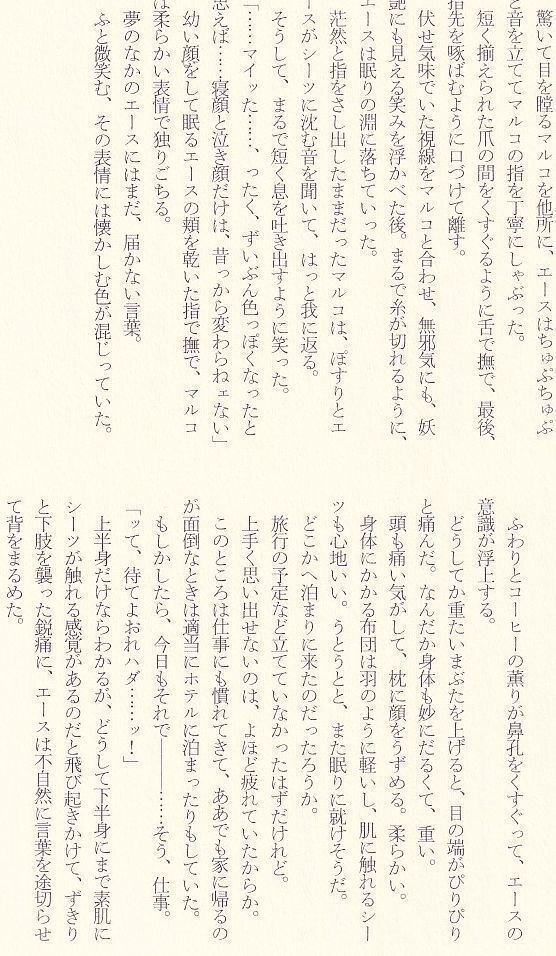 驚いて目を瞠るマルコを他所に、エースはちゅぷちゅぷ
と音を立ててマルコの指を丁寧にしゃぶった。
短く揃えられた爪の間をくすぐるように舌で撫で、最後、
指先を啄ばむように口づけて離す。
伏せ気味でいた視線をマルコと合わせ、無邪気にも、妖
艶にも見える笑みを浮かべた後。まるで糸が切れるように、
エースは眠りの淵に落ちていった。
茫然と指をさし出したままだったマルコは、ぽすりとエ
ースがシーツに沈む音を聞いて、はっと我に返る。
そうして、まるで短く息を吐き出すように笑った。
「……マイッた……、ったく、ずいぶん色っぽくなったと
思えば……寝顔と泣き顔だけは、昔っから変わらねェない」
幼い顔をして眠るエースの頬を乾いた指で撫で、マルコ
は柔らかい表情で独りごちる。
夢のなかのエースにはまだ、届かない言葉。
ふと微笑む、その表情には懐かしむ色が混じっていた。
ふわりとコーヒーの薫りが鼻孔をくすぐって、エースの
意識が浮上する。
どうしてか重たいまぶたを上げると、目の端がぴりぴり
と痛んだ。なんだか身体も妙にだるくて、重い。
頭も痛い気がして、枕に顔をうずめる。柔らかい。
身体にかかる布団は羽のように軽いし、肌に触れるシー
ツも心地いい。うとうとと、また眠りに就けそうだ。
どこかへ泊まりに来たのだったろうか。
旅行の予定など立てていなかったはずだけれど。
上手く思い出せないのは、よほど疲れていたからか。
このところは仕事にも慣れてきて、ああでも家に帰るの
が面倒なときは適当にホテルに泊まったりもしていた。
もしかしたら、今日もそれで――――……そう、仕事。
「ッて、待てよおれハダ……ッ！」
上半身だけならわかるが、どうして下半身にまで素肌に
シーツが触れる感覚があるのだと飛び起きかけて、ずきり
と下肢を襲った鋭痛に、エースは不自然に言葉を途切らせ
て背をまるめた。